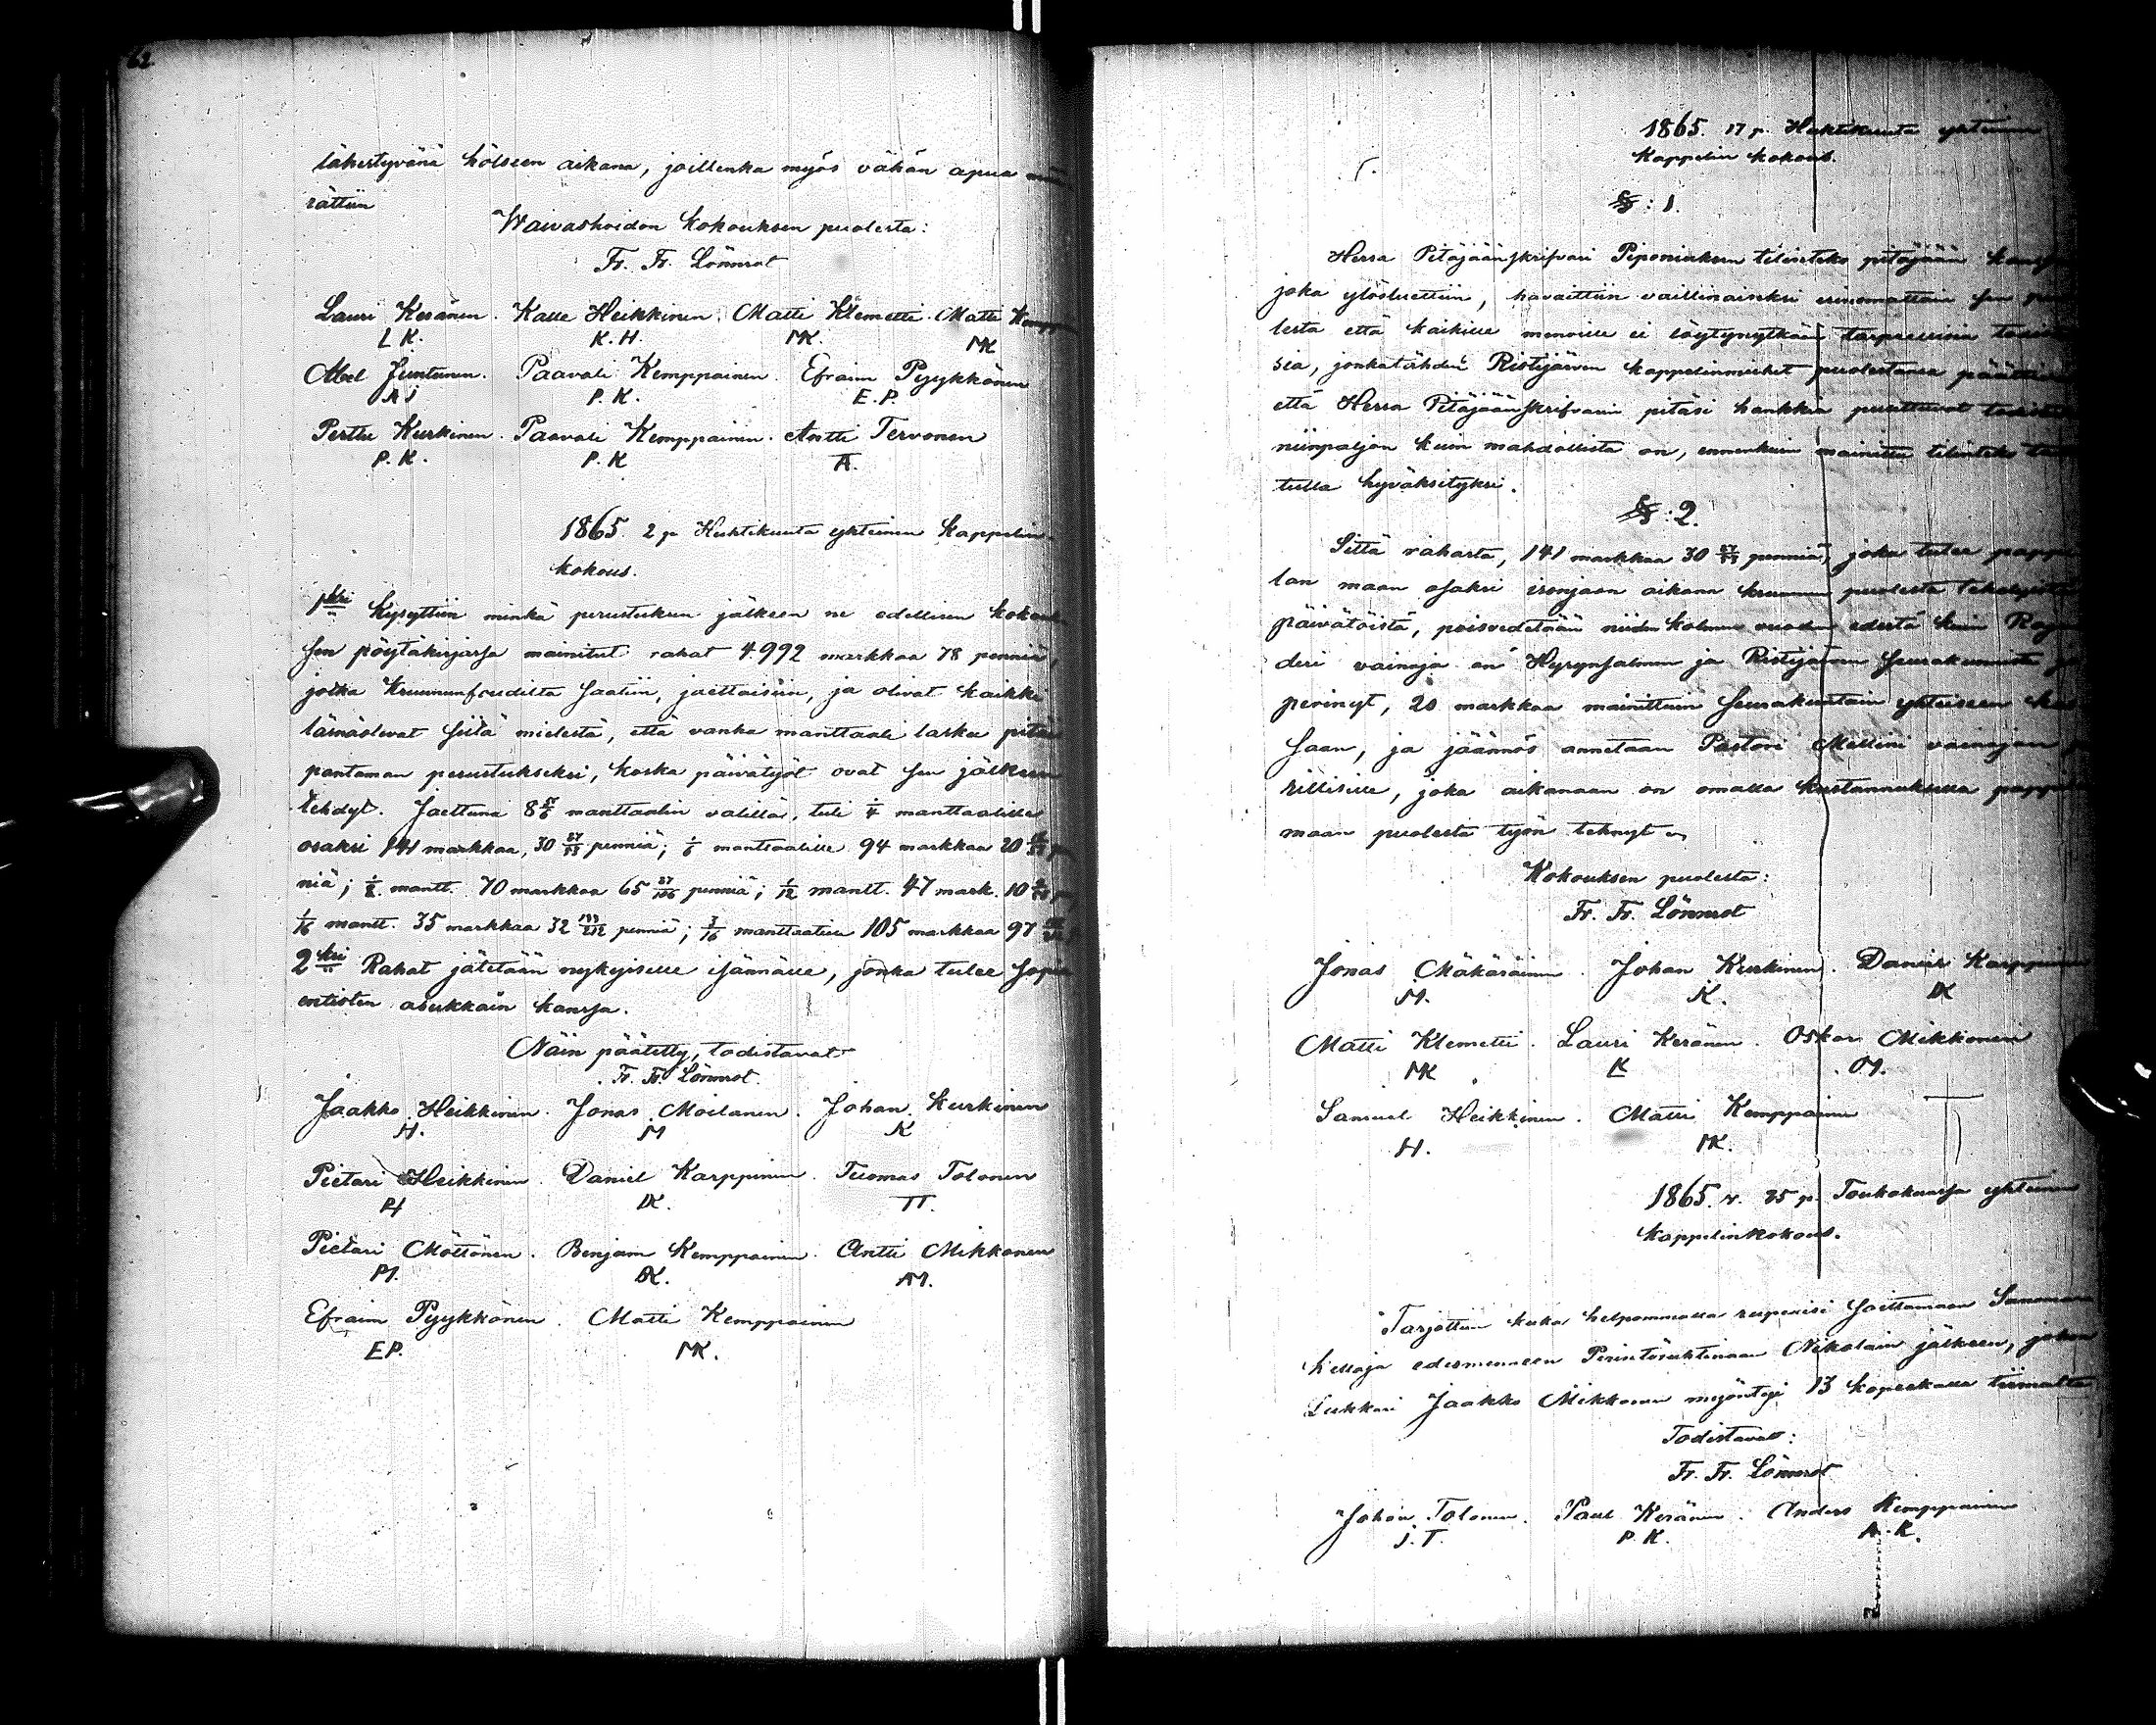 62
lähestyvänä hätseen aikana, joillenka myös vähän apua
rättiin
Waivashoidon kokouksen puolesta:
Fr. Fr. Lönnrot
Lauri Keränen. Kalle Heikkinen. Matti Klemetti. Matti Kempp
L K. K. H. MK. MK
Abel Juntunen. Paavali Kemppainen. Efraim Pyykkönen
AJ P. K. E. P.
Perttu Kurkinen. Paavali Kemppainen. Antti Tervonen
P. K. P. K AT.
1865. 2 p Huhtikuuta yhteinen kappelin-
kokous.
1ksi Kysyttiin minkä perustuksen jälkeen ne edellisen kokouk
sen pöytäkirjassa mainitut rahat 4.992 markkaa 78 penniä,
jotka kruununfoudilta saatiin, jaettaisiin, ja olivat kaikki
läsnäolevat siitä mielestä, että vanha manttaali lasku pitäis
pantaman perustukseksi, koska päivätyöt ovat sen jälkeen
tehdyt. Jaettuna 8 5/6 manttaalin välillä, tuli 1/4 manttaalille
osaksi 141 markkaa, 30 27/53 penniä; 1/6 manttaalille 94 markkaa 20
niä; 1/8 mantt. 70 markkaa 65 27/106 penniä; 1/12 mantt. 47 mark. 10
1/16 mantt. 35 markkaa 32 133/212 penniä; 3/16 manttaalille 105 markkaa 97
2ksi Rahat jätetään nykyiselle isännälle, jonka tulee sopia
entisten asukkain kanssa.
Näin päätetty, todistavat
Fr. Fr. Lönnrot.
Jaakko Heikkinen. Jonas Moilanen. Johan Kurkinen
H. M K
Pietari Heikkinen. Daniel Karppinen. Tuomas Tolonen
PH DK. TT.
Pietari Möttönen. Benjam Kemppainen. Antti Mikkonen
PM. BK. AM.
Efraim Pyykkönen. Matti Kemppainen
EP. MK.
1865. 17 p. Huhtikuuta yhteinen
kappelin kokous.
§: 1.
Herra Pitäjäänskrifvari Piponiuksen tilinteko pitäjään
joka ylösluettiin, havaittiin vaillinaiseksi erinomattain sen
lesta että kaikille menoille ei löytynytkään tarpeellisia
sia, jonkatähden Ristijärven kappelinmiehet puolestansa päättivät
että Herra Pitäjäänskrifvarin pitäisi hankkia puuttuvat
niinpaljon kuin mahdollista on, ennenkuin mainittu tilinteko
tulla hyväksytyksi.
§: 2.
Siitä rahasta, 141 markkaa 30 27/53 penniä, joka tulee
lan maan osaksi isonjaon aikana kruunun puolesta
päivätöistä, poisvedetään niiden kolmen vuoden edestä kuin
deri vainaja on Hyrynsalmen ja Ristijärven seurakunnista
perinyt, 20 markkaa mainittuin seurakuntain yhteiseen
saan, ja jäännös annetaan Pastori Mellini vainajan
rillisille, joka aikanaan on omalla kustannuksella
maan puolesta työn tehnyt
Kokouksen puolesta:
Fr. Fr. Lönnrot
Jonas Mäkäräinen. Johan Kurkinen. Daniel Karppinen
M. K. DK
Matti Klemetti. Lauri Keränen. Oskar Mikkonen
MK K OM.
Samuel Heikkinen. Matti Kemppainen
H. MK.
1865. v. 25 p. Toukokuussa yhteinen
kappelinkokous.
Tarjottiin kuka helpommalla rupeaisi soittamaan
kelloja edesmenneen Perintöruhtinaan Nikolain jälkeen,
Lukkari Jaakko Mikkonen myöntyi 13 kopeekalla tiimalta
Todistavat:
Fr. Fr. Lönnrot
Johan Tolonen. Paul Keränen. Anders Kemppainen
J. T. P. K. A. K.